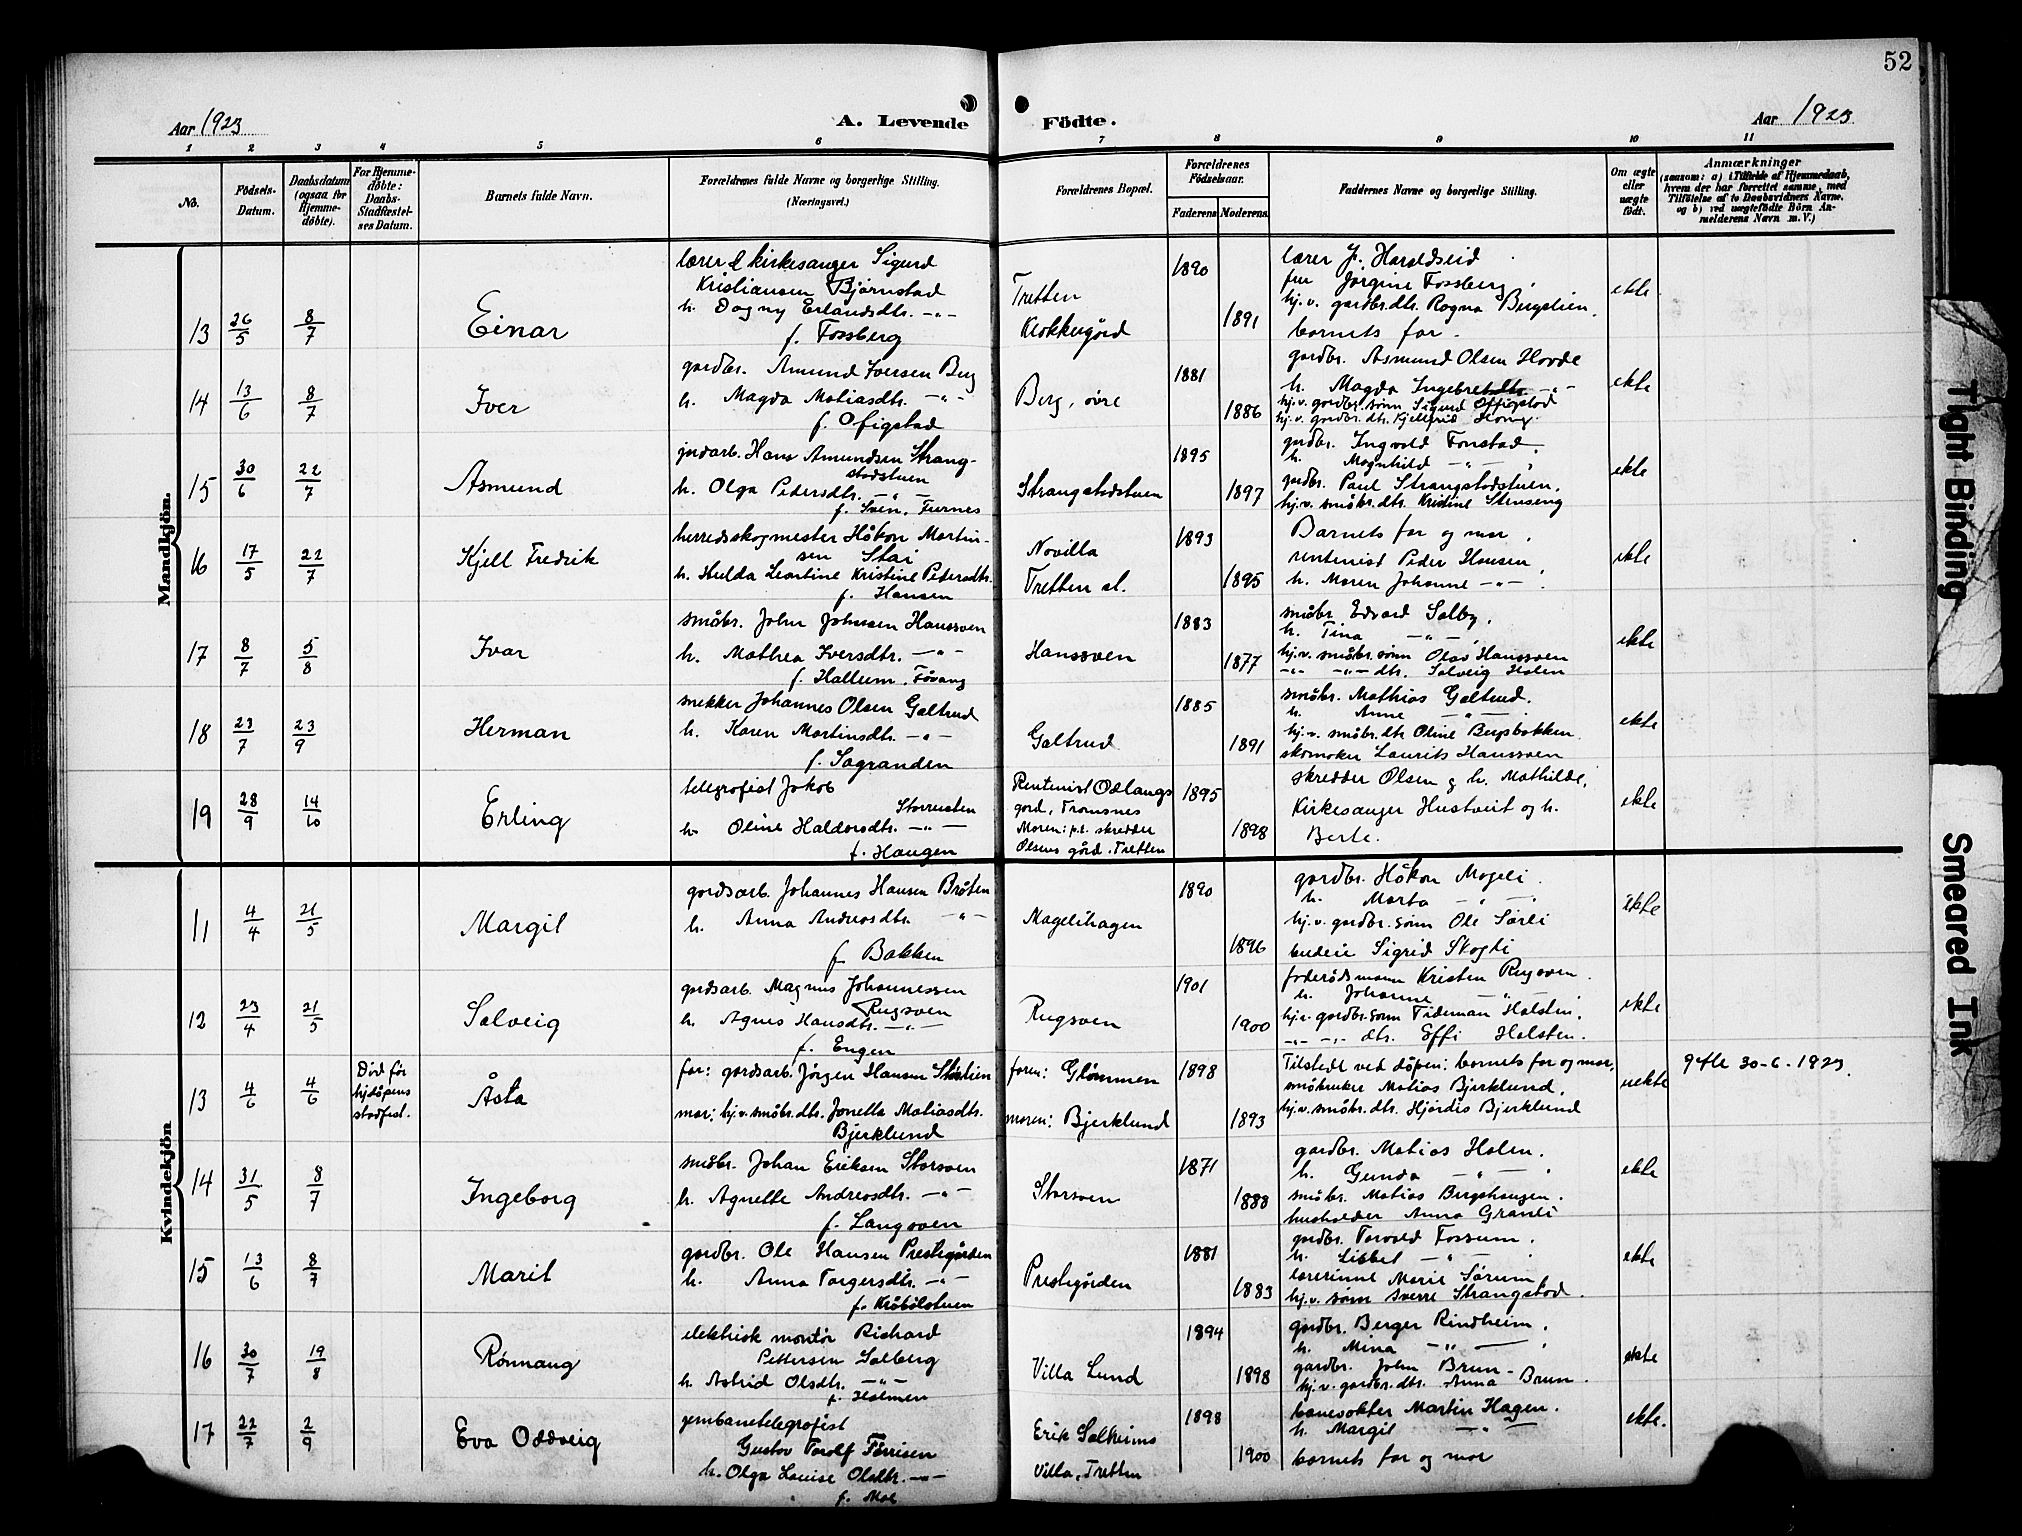 52
Aar 1923
A. Levende
Födte.
Aar 1923
1 2 3 4 5 6 7 8 9 10 11
No.
Födsels-
Datum.
Daabsdatum
(ogsaa for
Hjemme-
döbte).
For Hjemme-
døbte:
Daabs-
Stadfæstel-
ses Datum.
Barnets fulde Navn.
Forældrenes fulde Navne og borgerlige Stilling.
(Næringsvei.)
Forældrenes Bopæl.
Forældrenes
Födselsaar.
Faderens
Moderens
Faddernes Navne og borgerlige Stilling.
Om ægte
eller
uægte
födt.
Anmærkninger
(saasom: a) i Tilfælde af Hjemmedaab,
hvem der har forrettet samme, med
Tilföielse af to Daabsvidners Navne,
og b) ved uægtefödte Börn An-
melderens Navn m. V.)
Mandkjön.
13
26/5
8/7
Einar
lærer & kirkesanger Sigurd
Kristiansen Bjørnstad
h. Dagny Erlandsdtr. -„-
f. Fossberg
Tretten
Klokkergård
1890
1891
lærer J. Haraldseid
fru Jørgine Fossberg,
hj.v. gardbr.dtr. Ragna Bergslien,
barnets far.
ekte
14
13/6
8/7
Iver
gardbr. Amund Iversen Berg
h. Magda Matiasdtr. -„-
f. Ofigstad
Berg, øvre
1881
1886
gardbr. Asmund Olsen Hovde
h. Magda Ingebretsdtr -„-
hj.v. gardbr. sønn Sigurd Offigstad
hj.v. gardbr. dtr. Kjellfrid Hong.
ekte
15
30/6
22/7
Asmund
jordarb. Hans Amundsen Strang-
stadstuen
h. Olga Pedersdtr. -„-
f. Sven, Furnes
Strangstadstuen
1895
1897
gardbr. Ingvald Fonstad,
h. Magnhild -„-,
gardbr. Paul Strangstadstuen,
hj.v. småbr. dtr. Kristine Stenseng
ekte
16
17/5
22/7
Kjell Fredrik
herredsskogmester Håkon Martin-
sen Stai
h. Hulda Leontine Kristine Pedersdtr.
f. Hansen
Novilla
Tretten st.
1893
1895
Barnets far og mor,
rentenist Peder Hansen,
h. Maren Johanne -„-.
ekte
17
8/7
5/8
Ivar
småbr. John Johnsen Hanssven
h. Mathea Iversdtr. -„-
f. Hallum, Fåvang
Hanssven
1883
1877
småbr. Edvard Solby,
h. Tina -„-
hj.v. småbr. sønn Olav Hanssven
-„- -„- dtr. Solveig Holen
ekte
18
23/7
23/9
Herman
snekker Johannes Olsen Galtrud
h. Karen Martinsdtr. -„-
f. Sagranden
Galtrud
1885
1891
småbr. Mathias Galtrud.
h. Anne -„-
hj.v. småbr. dtr. Oline Bergsbakken
skomaker Laurits Hanssven
ekte
19
28/9
14/10
Erling
telegrafist Jakob
Storrusten
h. Oline Haldorsdtr. -„-
f. Haugen
Rentenist Odlangs
gard, Tromsnes
Moren: p.t. skredder
Olsens gård, Tretten
1895
1898
skredder Olsen & h. Mathilde,
Kirkesanger Hustveit og h.
Berte.
ekte
Kvindekjön
11
4/4
21/5
Margit
gardsarb. Johannes Hansen Bråten
h. Anna Andreasdtr. -„-
f. Bakken
Magelihagen
1890
1896
gardbr. Håkon Mageli.
h. Marta -„-
hj.v. gardbr. sønn Ole Sørli
budeie Sigrid Skogli
ekte
12
23/4
21/5
Solveig
gardsarb. Magnus Johannessen
Rugsven
h. Agnes Hansdtr. -„-
f. Engen
Rugsven
1901
1900
føderådsmann Kristen Rugsven.
h. Johanne -„-
hj.v. gardbr. sønn Tideman Holsten,
-„- -„- dtr. Effi Holsten.
ekte
13
4/6
4/6
Død før
hjdåpens
stadfest.
Åsta
far: gardsarb. Jørgen Hansen Storlien
mor: hj.v. småbr. dtr. Jonetta Matiasdtr.
Bjerklund
faren: Glømmen
moren: Bjerklund
1898
1893
Tilstedt ved dåpen: barnets far og mor,
småbruker Matias Bjerklund,
hj.v. småbr. dtr. Hjørdis Bjerklund
uekte
gifte 30-6-1923.
14
31/5
8/7
Ingeborg
småbr. Johan Eriksen Storsven
h. Agnette Andreasdtr. -„-
f. Langsven
Storsven
1871
1888
gardbr. Matias Holen.
h. Gunda -„-
småbr. Matias Bergshaugen.
husholder Anna Granli
ekte
15
13/6
8/7
Marit
gardbr. Ole Hansen Prestegården
h. Anna Torgersdtr. -„-
f. Kråbølstuen
Prestegården
1881
1883
gardbr. Torvald Fossum.
h. Lisbet -„-
lærerinne Marie Sørum
hj.v. sønn Sverre Strangstad.
ekte
16
30/7
19/8
Rønnaug
elektrisk montør Richard
Pettersen Solberg
h. Astrid Olsdtr. -„-
f. Holmen
Villa Lund
1894
1898
gardbr. Berger Rindheim,
h. Mina -„-
gardbr. John Brun-
hj.v. gardbr. dtr. Anna Brun.
ekte
17
22/7
2/9
Eva Oddveig
jernbanetelegrafist
Gustav Torolf Førrisen
h. Olga Louise Olsdtr. -„-
f. Moe
Erik Solheims
Villa, Tretten
1898
1900
banevokter Martin Hagen.
h. Margit -„-
barnets far og mor
ekte.
Tight Binding
Smeared Ink